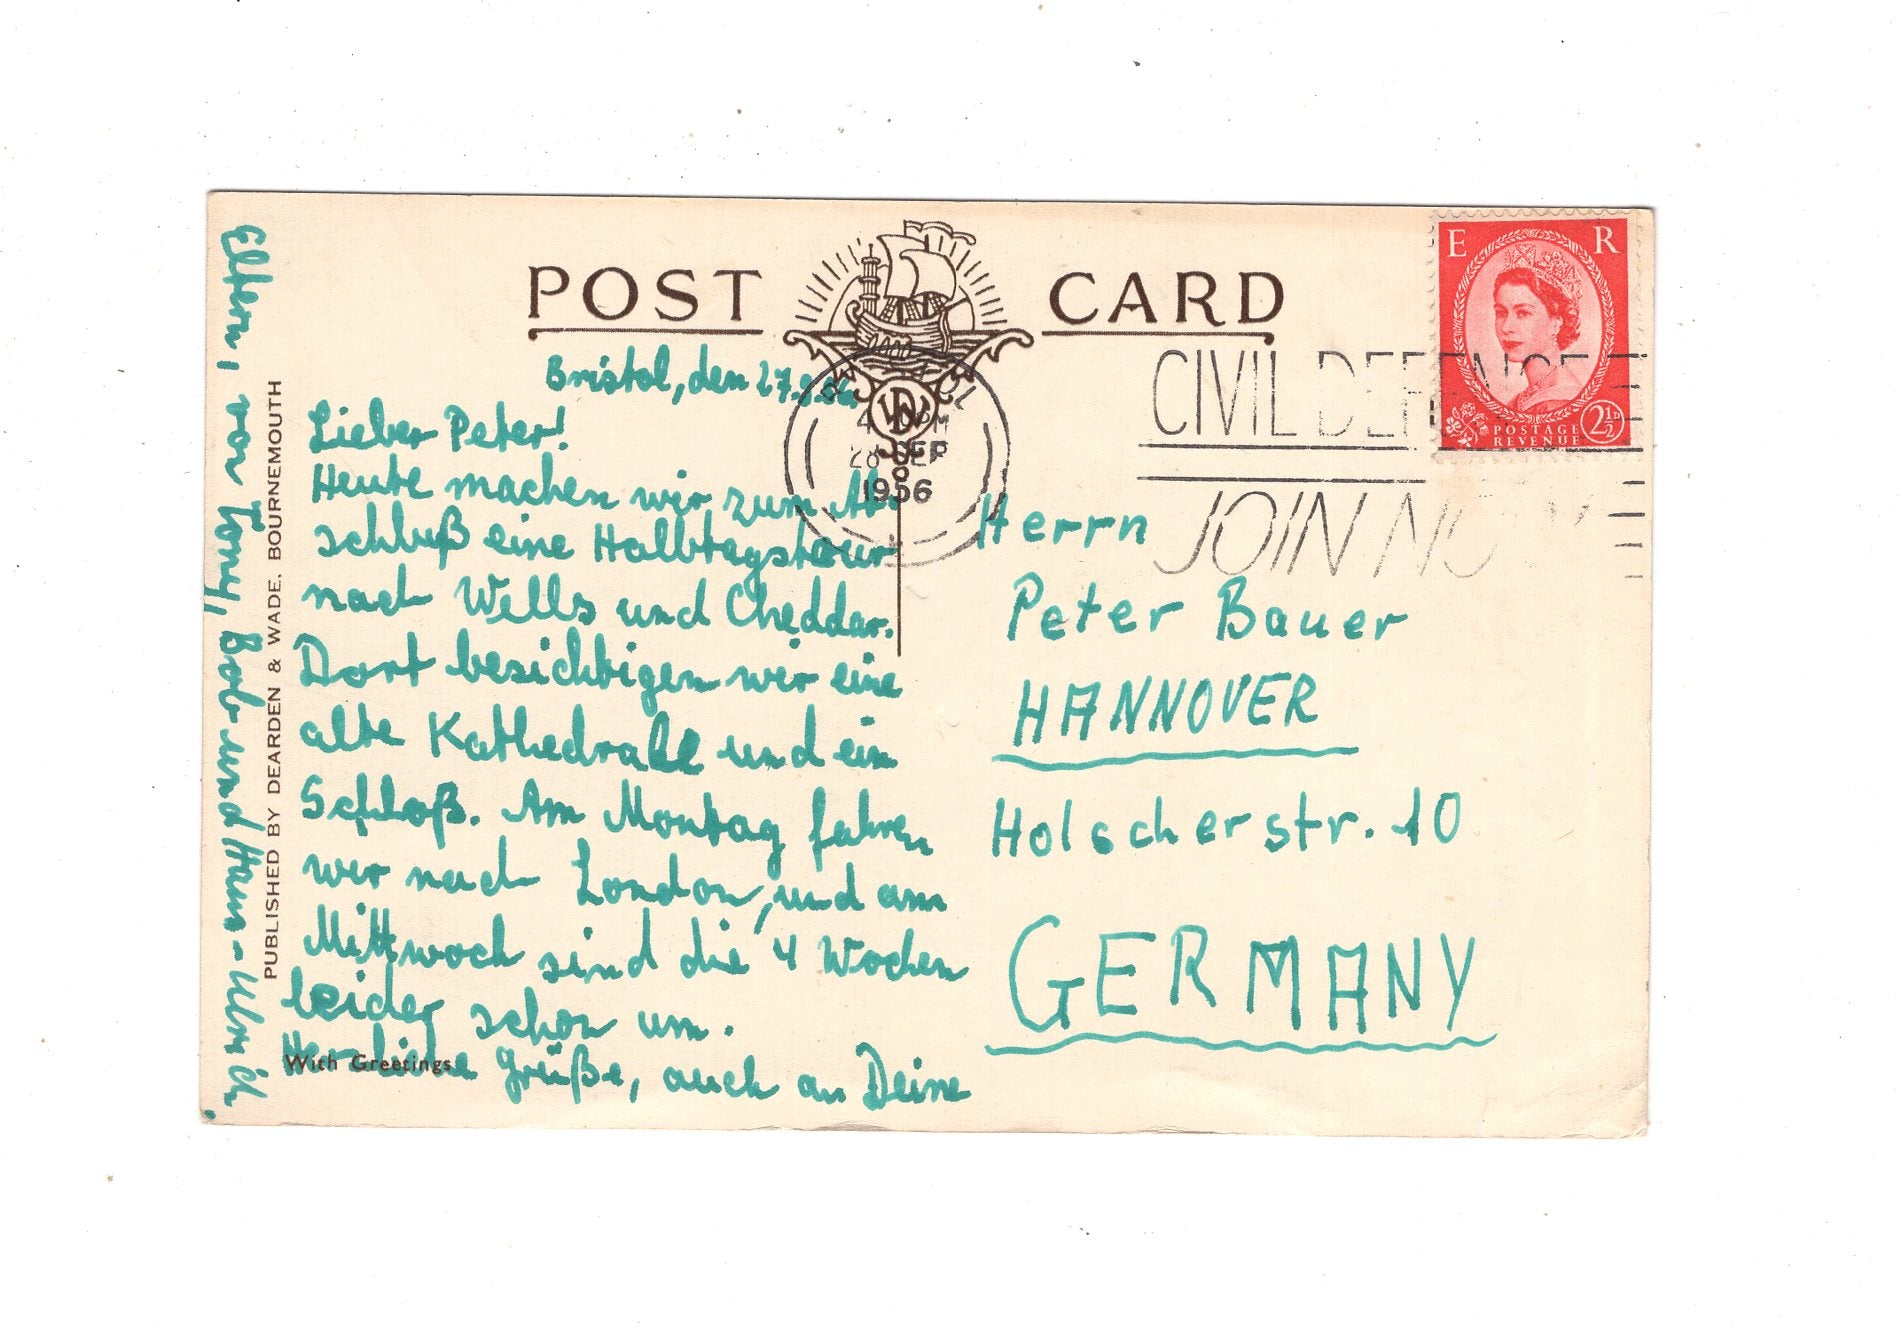 POST CARD
E R
POSTAGE
REVENUE
2½D
CIVIL DEFENCE
JOIN NOW
PM
28 SEP
1956
Bristol, den 27.9.56
Lieber Peter!
Heute machen wir zum Ab-
schluß eine Halbtagstour
nach Wells und Cheddar.
Dort besichtigen wir eine
alte Kathedrale und ein
Schloß. Am Montag fahren
wir nach London, und am
Mittwoch sind die 4 Wochen
leider schon um.
Herzliche Grüße, auch an Deine
Eltern, von Tony, Bob und Hans-Ulrich.
With Greetings
PUBLISHED BY DEARDEN & WADE, BOURNEMOUTH
Herrn
Peter Bauer
HANNOVER
Holscherstr. 10
GERMANY